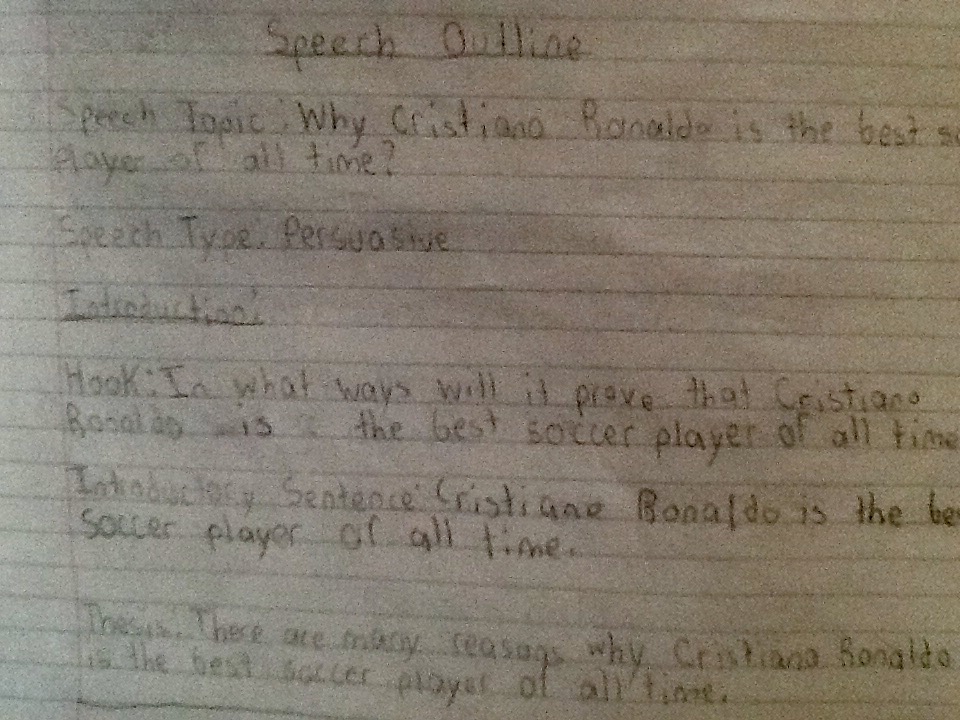 Speech Outline
Speech Topic: Why Cristiano Ronaldo is the best so
Player of all time?
Speech Type: Persuasive
Introduction:
Hook: In what ways will it prove that Cristiano
Ronaldo is the best soccer player of all time
Introductory Sentence: Cristiano Ronaldo is the be
soccer player of all time.
Thesis: There are many reasons why Cristiano Ronaldo
is the best soccer player of all time.